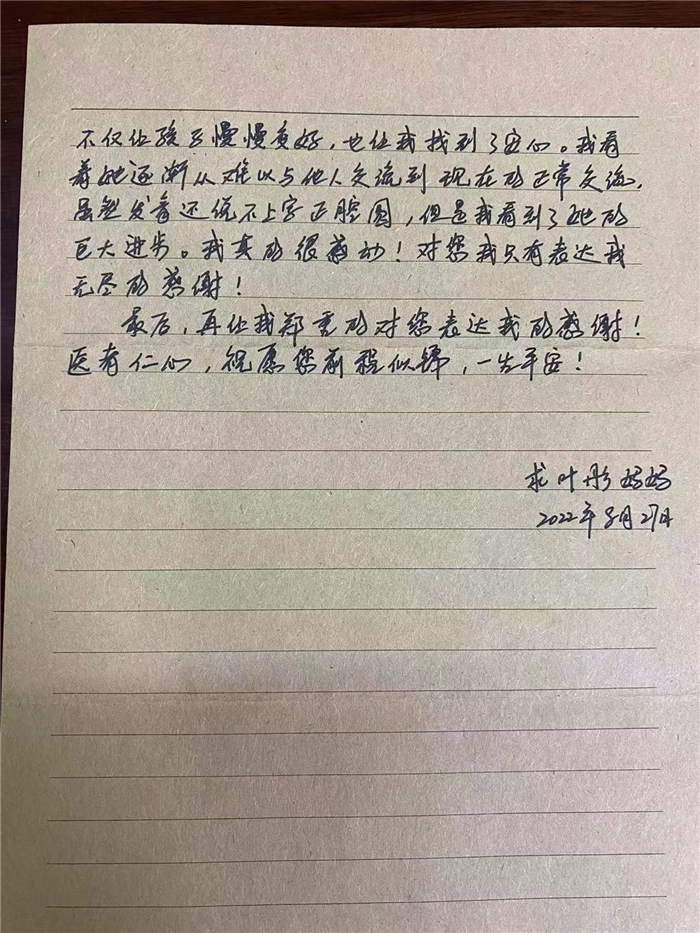 不仅让孩子慢慢变好，也让我找到了安心。我看
着她逐渐从难以与他人交流到现在的正常交流，
虽然发音还说不上字正腔圆，但是我看到了她的
巨大进步。我真的很感动！对您我只有表达我
无尽的感谢！
最后，再让我郑重的对您表达我的感谢！
医者仁心，祝愿您前程似锦，一生平安！
求叶彤妈妈
2022年8月27日